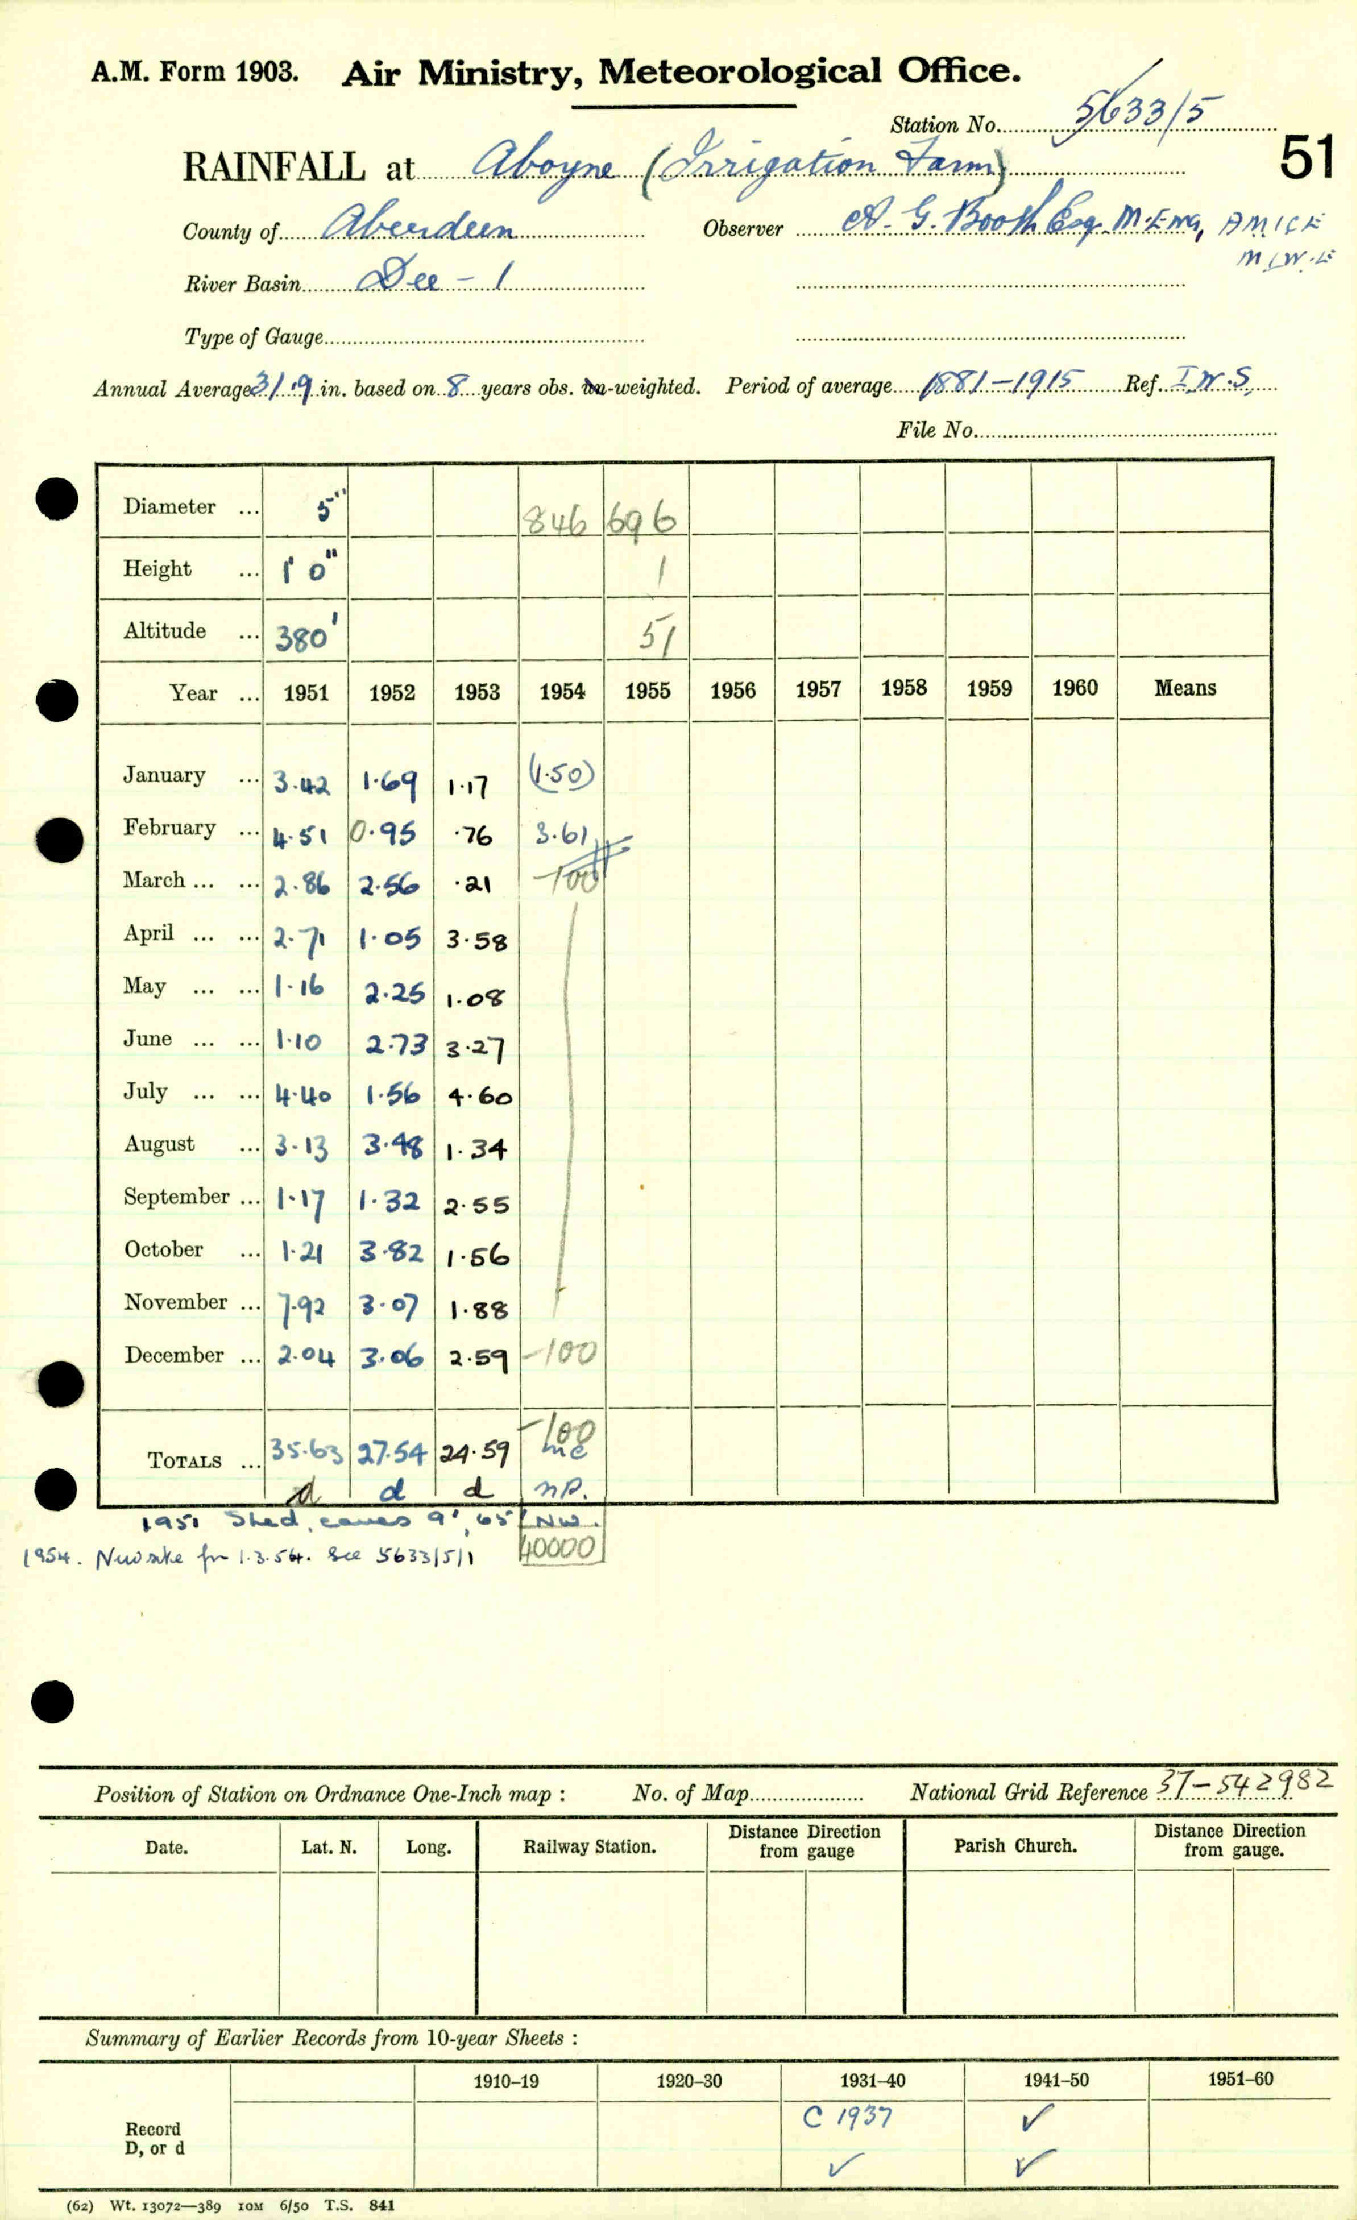 A.M. Form 1903. Air Ministry, Meteorological Office.
Station No. 5633/5
51
RAINFALL at Aboyne (Irrigation Farm)
County of Aberdeen Observer A. G. Booth Esq. M.Eng, AMICE
M.I.W.E
River Basin Dee - 1
Type of Gauge
Annual Average 31.9 in. based on 8 years obs. un-weighted. Period of average 1881-1915 Ref. I.W.S.
File No.
Diameter ... 5" 846 696
Height ... 1' 0" 1
Altitude ... 380' 51
Year ... 1951 1952 1953 1954 1955 1956 1957 1958 1959 1960 Means
January ... 3.42 1.69 1.17 (1.50)
February ... 4.51 0.95 .76 3.61
March ... ... 2.86 2.56 .21 -100
April ... ... 2.71 1.05 3.58
May ... ... 1.16 2.25 1.08
June ... ... 1.10 2.73 3.27
July ... ... 4.40 1.56 4.60
August ... 3.13 3.48 1.34
September ... 1.17 1.32 2.55
October ... 1.21 3.82 1.56
November ... 7.92 3.07 1.88
December ... 2.04 3.06 2.59 -100
-100
TOTALS ... 35.63 27.54 24.59 inc
d d d n.P.
1951 Shed, eaves 9', 65' NW.
1954. New site fr 1.3.54. See 5633/5/1 40000
Position of Station on Ordnance One-Inch map : No. of Map National Grid Reference 37-542982
Date. Lat. N. Long. Railway Station. Distance from Direction gauge Parish Church. Distance from Direction gauge.
Summary of Earlier Records from 10-year Sheets :
1910–19 1920–30 1931–40 1941–50 1951–60
Record C 1937 ✓
D, or d ✓ ✓
(62) Wt. 13072—389 10M 6/50 T.S. 841